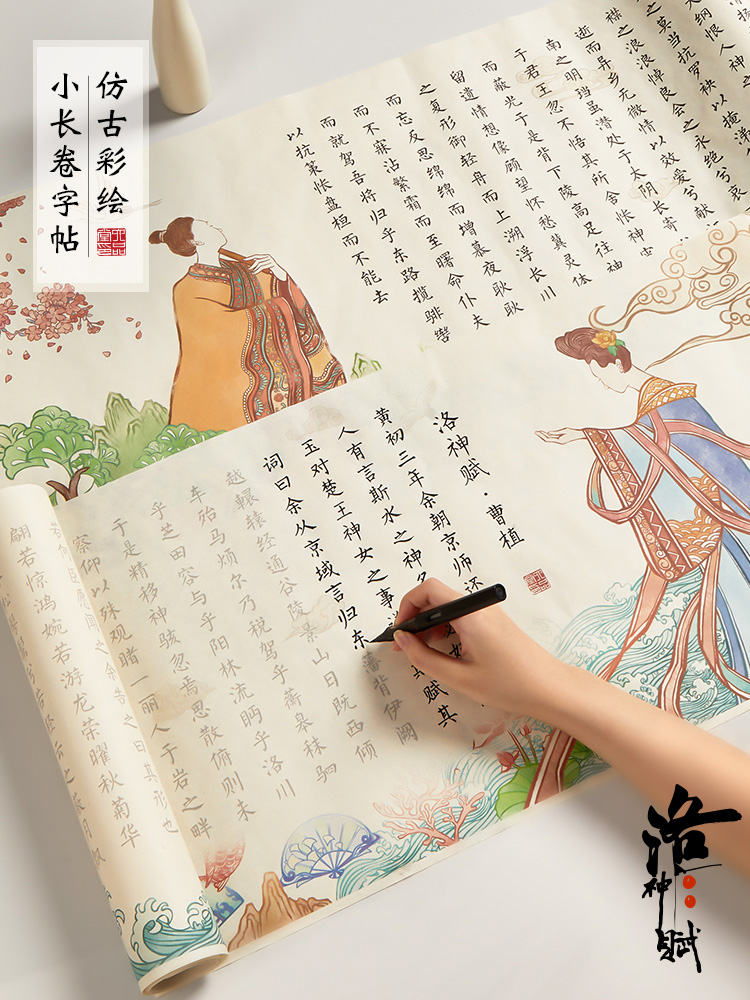 仿古彩绘
小长卷字帖
大纲恨人神之
之莫当抗罗袂以掩涕
襟之浪浪悼良会之永绝兮哀
逝而异乡无微情以效爱兮献
南之明珰虽潜处于太阴长寄
于君王忽不悟其所舍怅神宵
而蔽光于是背下陵高足往神
留遗情想像顾望怀愁冀灵体
之复形御轻舟而上溯浮长川
而忘反思绵绵而增慕夜耿耿
而不寐沾繁霜而至曙命仆夫
而就驾吾将归乎东路揽騑辔
以抗策怅盘桓而不能去
洛神赋·曹植
黄初三年余朝京师还
人有言斯水之神名
玉对楚王神女之事 赋其
词曰余从京域言归东藩背伊阙
越轘辕经通谷陵景山日既西倾
车殆马烦尔乃税驾乎蘅皋秣驷
乎芝田容与乎阳林流眄乎洛川
于是精移神骇忽焉思散俯则未
察仰以殊观睹一丽人于岩之畔
愿闻之余告之曰其形也
翩若惊鸿婉若游龙荣曜秋菊华
洛神赋